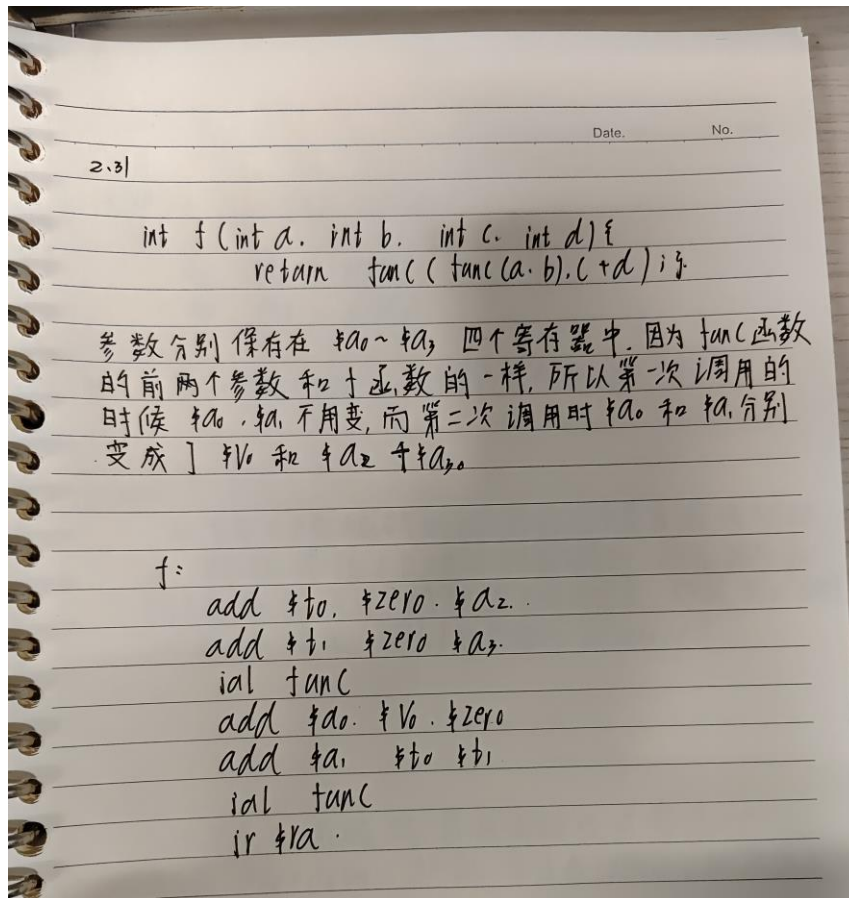 Date. No.
2.31
int f(int a. int b. int c. int d){
return func((func(a.b).c+d);}.
参数分别保存在 $a0~$a3 四个寄存器中.因为func函数
的前两个参数和f函数的一样,所以第一次调用的
时候$a0.$a1不用变,而第二次调用时$a0和$a1分别
变成了$v0和$a2于$a3。
f:
add $t0. $zero. $a2.
add $t1 $zero $a3.
jal func
add $a0. $v0. $zero
add $a1 $t0 $t1
jal func
jr $ra.